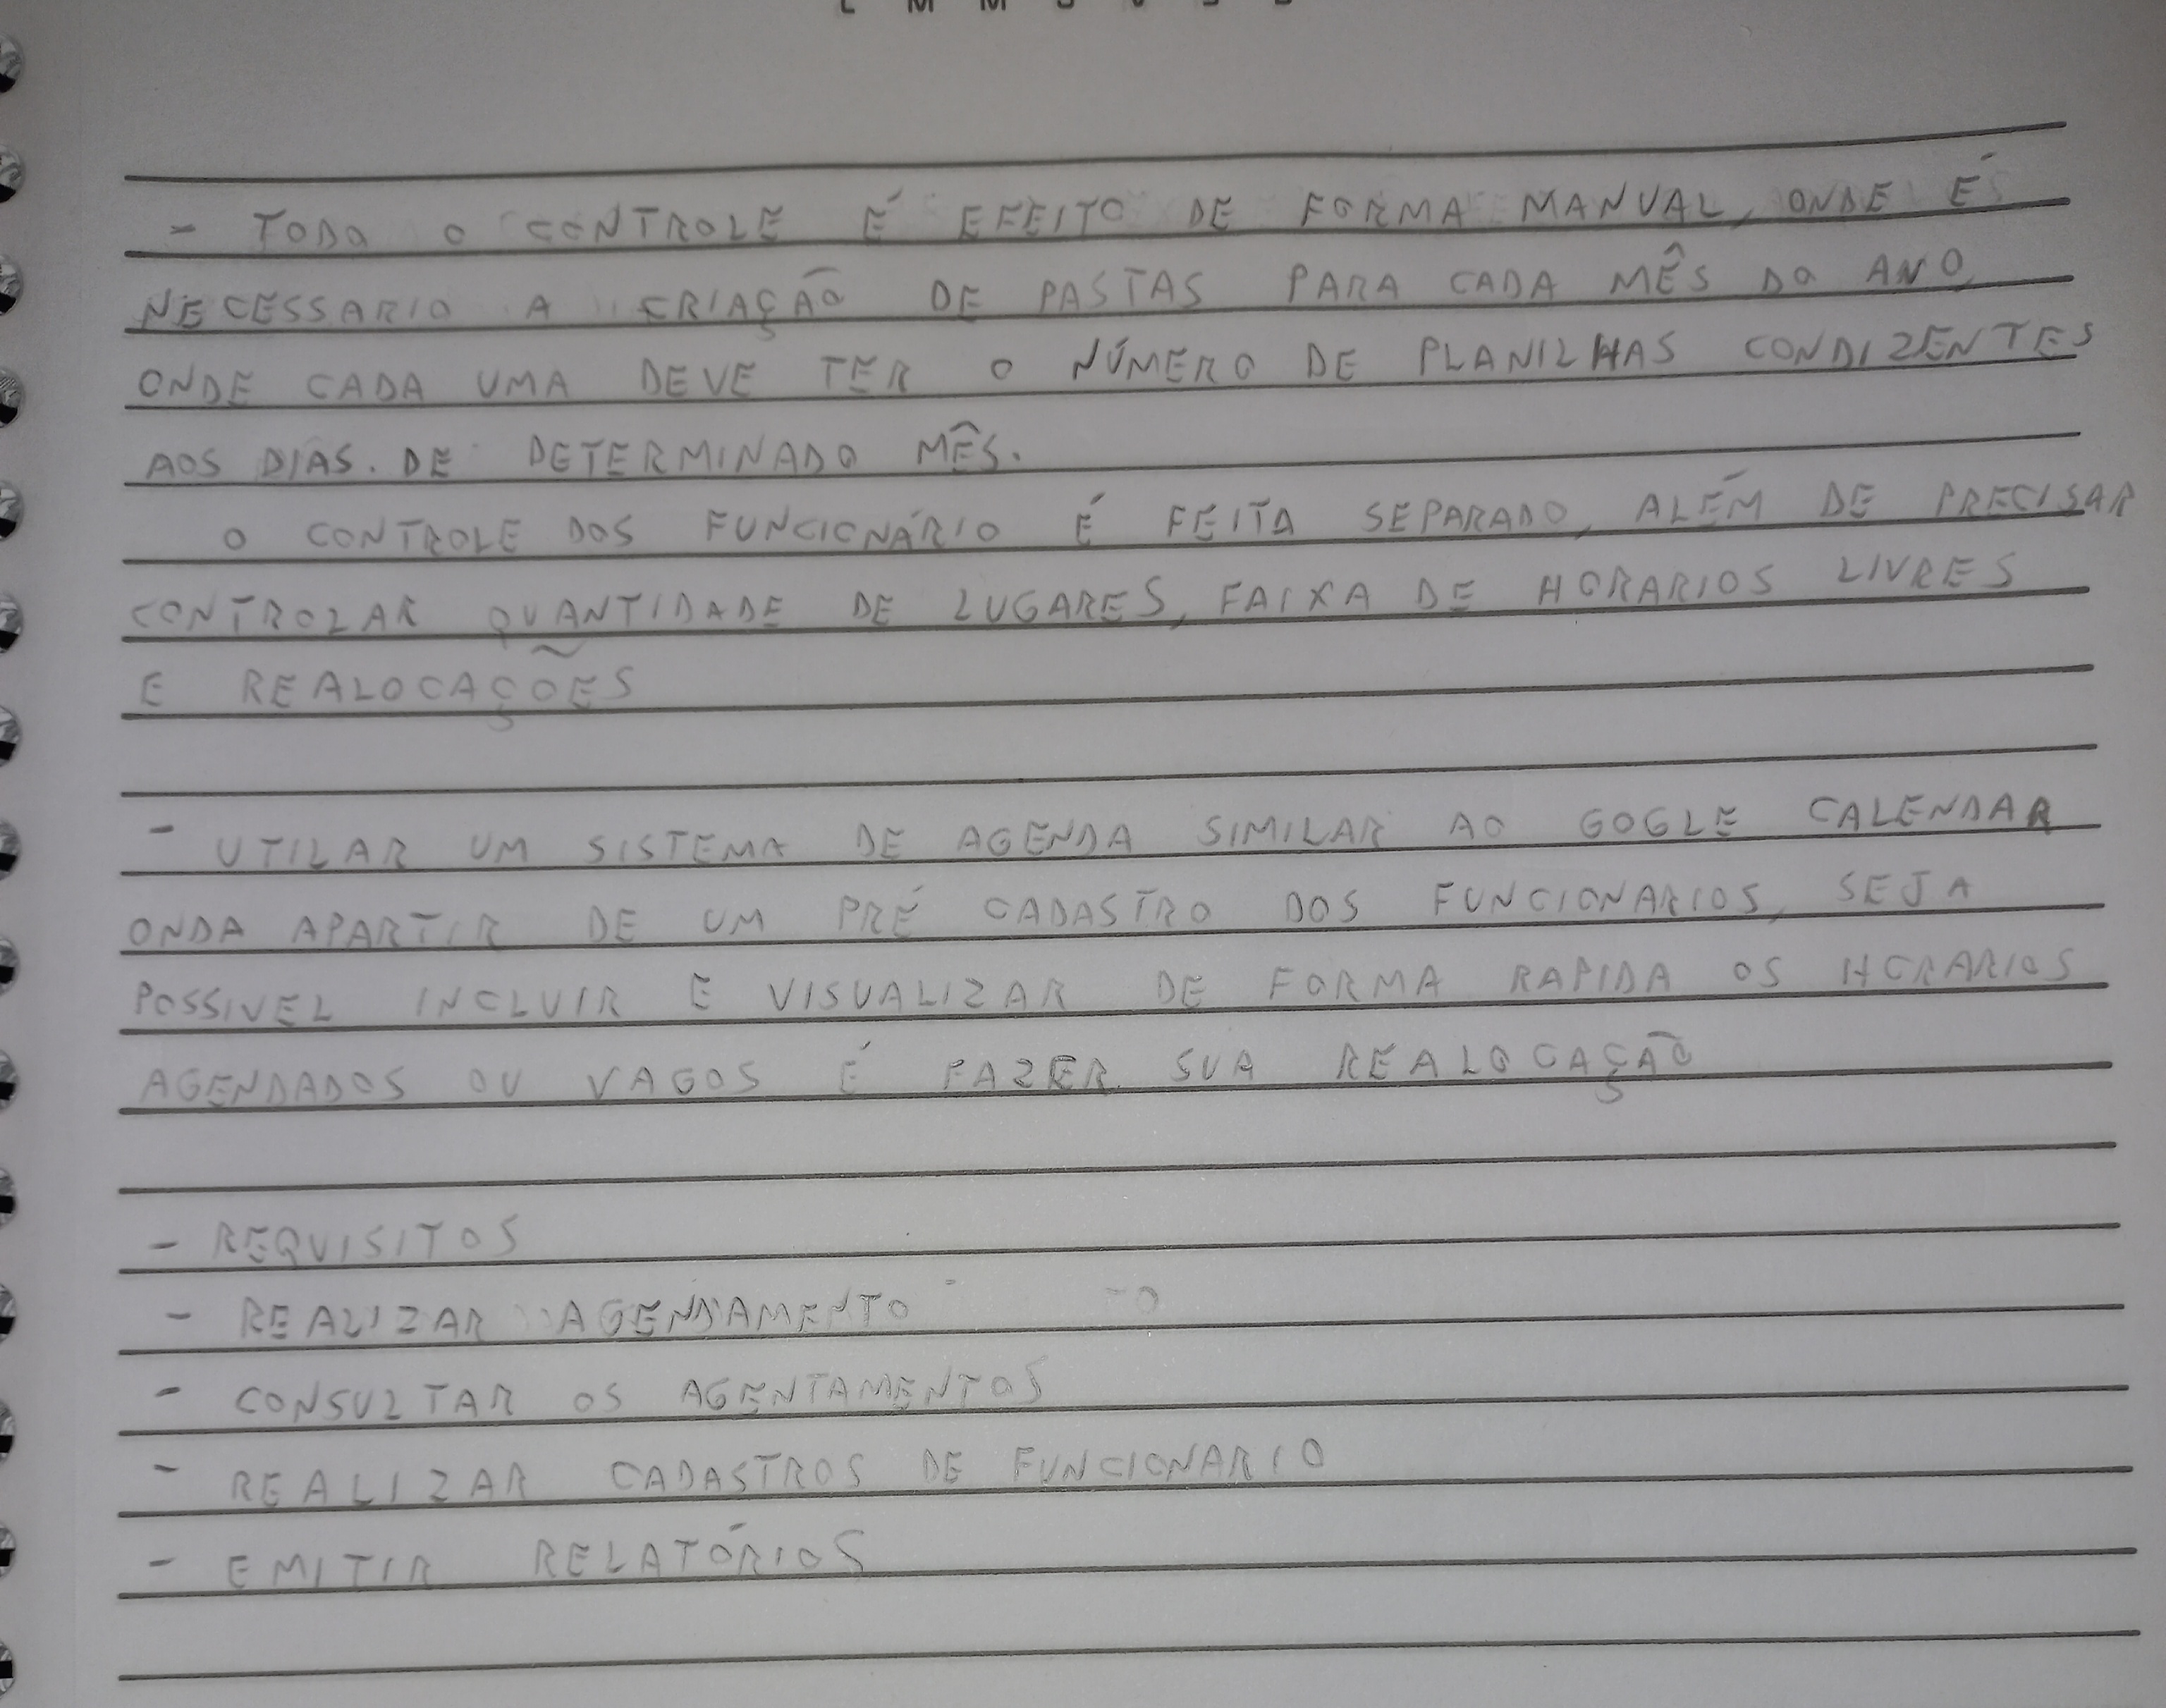 - TODO O CONTROLE É EFEITO DE FORMA MANUAL, ONDE É
NECESSARIO A CRIAÇÃO DE PASTAS PARA CADA MÊS DO ANO,
ONDE CADA UMA DEVE TER O NÚMERO DE PLANILHAS CONDIZENTES
AOS DIAS. DE DETERMINADO MÊS.
O CONTROLE DOS FUNCIONÁRIO É FEITA SEPARADO, ALÉM DE PRECISAR
CONTROLAR QUANTIDADE DE LUGARES, FAIXA DE HORARIOS LIVRES
E REALOCAÇÕES
- UTILAR UM SISTEMA DE AGENDA SIMILAR AO GOGLE CALENDAR
ONDA APARTIR DE UM PRÉ CADASTRO DOS FUNCIONARIOS, SEJA
POSSIVEL INCLUIR E VISUALIZAR DE FORMA RAPIDA OS HORARIOS
AGENDADOS OU VAGOS É FAZER SUA REALOCAÇÃO
- REQUISITOS
- REALIZAR AGENDAMENTO
- CONSULTAR OS AGENTAMENTOS
- REALIZAR CADASTROS DE FUNCIONARIO
- EMITIR RELATÓRIOS